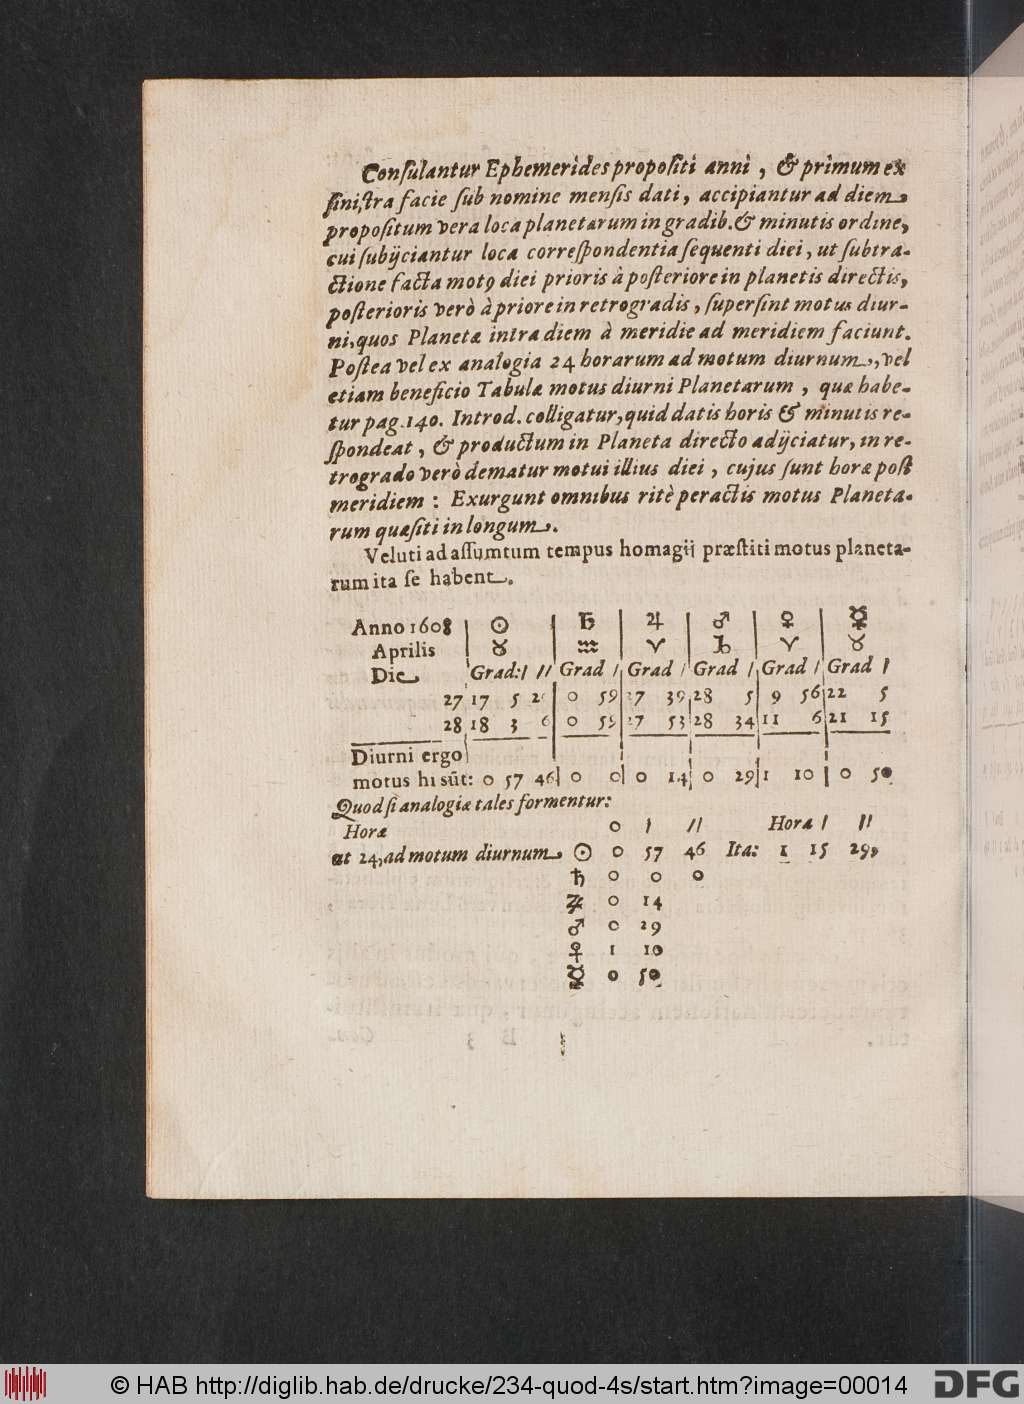 Conſulantur Ephemerides propoſiti anni, & primum ex
ſiniſtra facie ſub nomine menſis dati, accipiantur ad diem
propoſitum vera loca planetarum in gradib. & minutis ordine,
cui ſubijciantur loca correſpondentia ſequenti diei, ut ſubtra-
ctione facta motꝰ diei prioris à poſteriore in planetis directis,
poſterioris verò à priore in retrogradis, ſuperſint motus diur-
ni, quos Planetæ intra diem à meridie ad meridiem faciunt.
Poſtea vel ex analogia 24 horarum ad motum diurnum, vel
etiam beneficio Tabulæ motus diurni Planetarum, quæ habe-
tur pag. 140. Introd. colligatur, quid datis horis & minutis re-
ſpondeat, & productum in Planeta directo adijciatur, in re-
trogrado verò dematur motui illius diei, cujus ſunt horæ poſt
meridiem: Exurgunt omnibus ritè peractis motus Planeta-
rum quæſiti in longum.
Veluti ad aſſumtum tempus homagij præſtiti motus planeta-
rum ita ſe habent.
Anno 1608 | ☉ | ♄ | ♃ | ♂ | ♀ | ☿
Aprilis ♉ ♒ ♈ ♑ ♈ ♉
Die Grad: / // Grad / Grad / Grad / Grad / Grad /
27 17 5 0 59 27 39 28 5 9 56 22 5
28 18 3 6 0 59 27 53 28 34 11 6 21 15
Diurni ergo
motus hi sũt: 0 57 46 0 0 0 14 0 29 1 10 0 50
Quod ſi analogiæ tales formentur:
Horæ 0 / // Horæ / //
ut 24, ad motum diurnum ☉ 0 57 46 Ita: 1 15 29,
♄ 0 0 0
♃ 0 14
♂ 0 29
♀ 1 10
☿ 0 50
© HAB http://diglib.hab.de/drucke/234-quod-4s/start.htm?image=00014
DFG